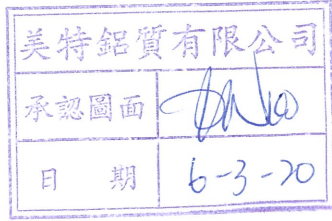 美特鋁質有限公司
承認圖面
日期 6-3-20